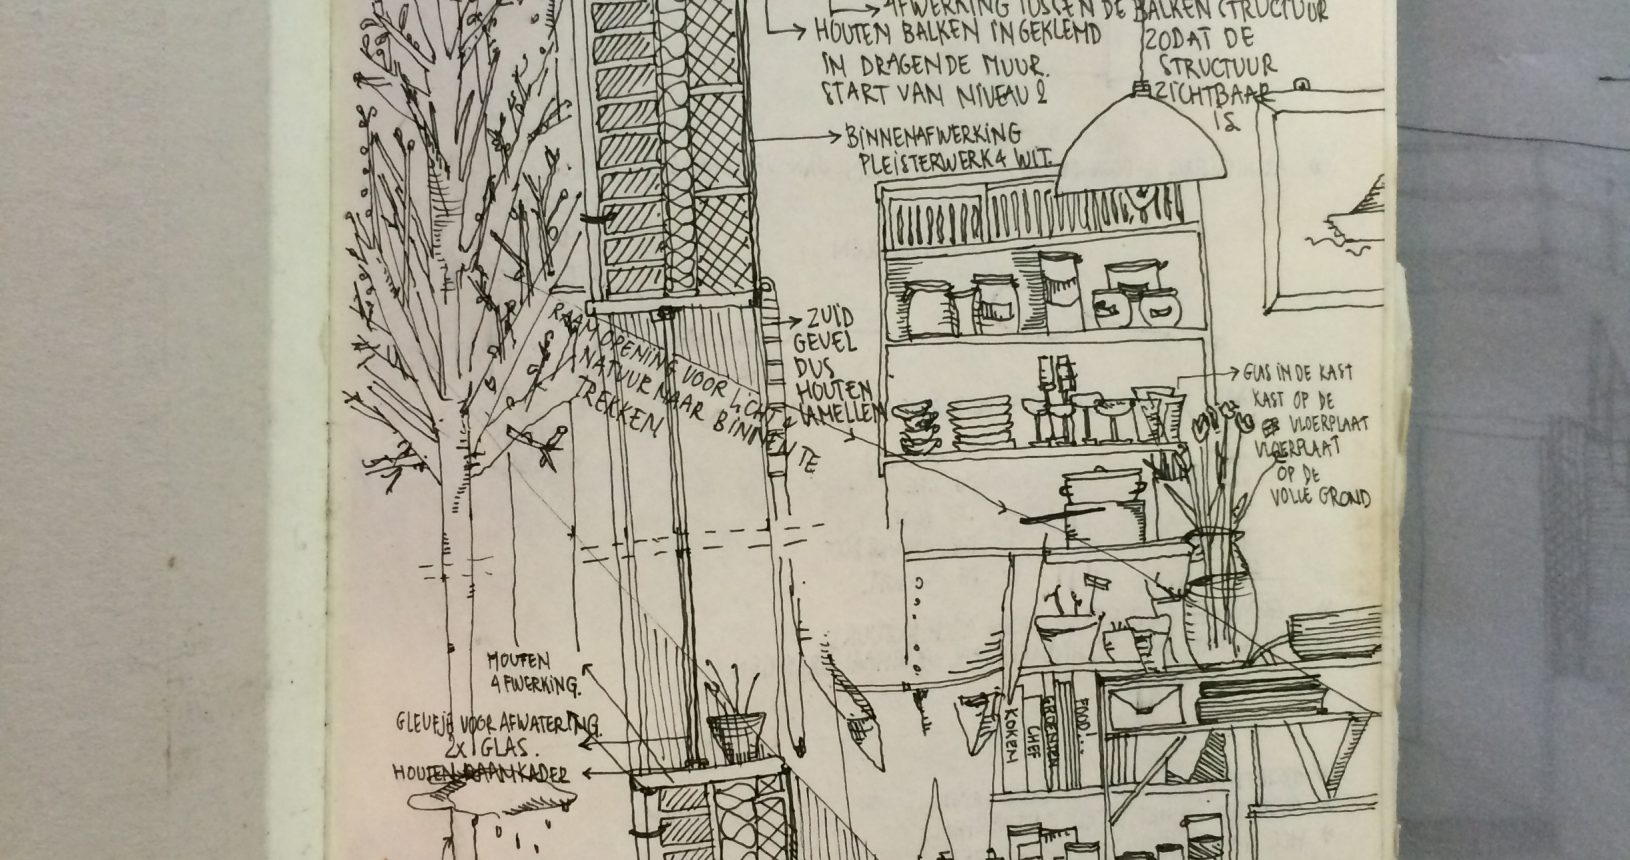 AFWERKING TUSSEN DE BALKEN STRUCTUUR
ZODAT DE
STRUCTUUR
ZICHTBAAR
IS
HOUTEN BALKEN INGEKLEMD
IN DRAGENDE MUUR.
START VAN NIVEAU 2
BINNENAFWERKING
PLEISTERWERK 4 WIT.
ZUID
GEVEL
DUS
HOUTEN
LAMELLEN
RAAMOPENING VOOR LICHT &
NATUUR NAAR BINNEN TE
TREKKEN
GLAS IN DE KAST
KAST OP DE
VLOERPLAAT
VLOERPLAAT
OP DE
VOLLE GROND
HOUTEN
AFWERKING.
GLEUFJE VOOR AFWATERING.
2x GLAS.
HOUTEN RAAMKADER
KOKEN
CHEF
GROENTEN
FOOD...